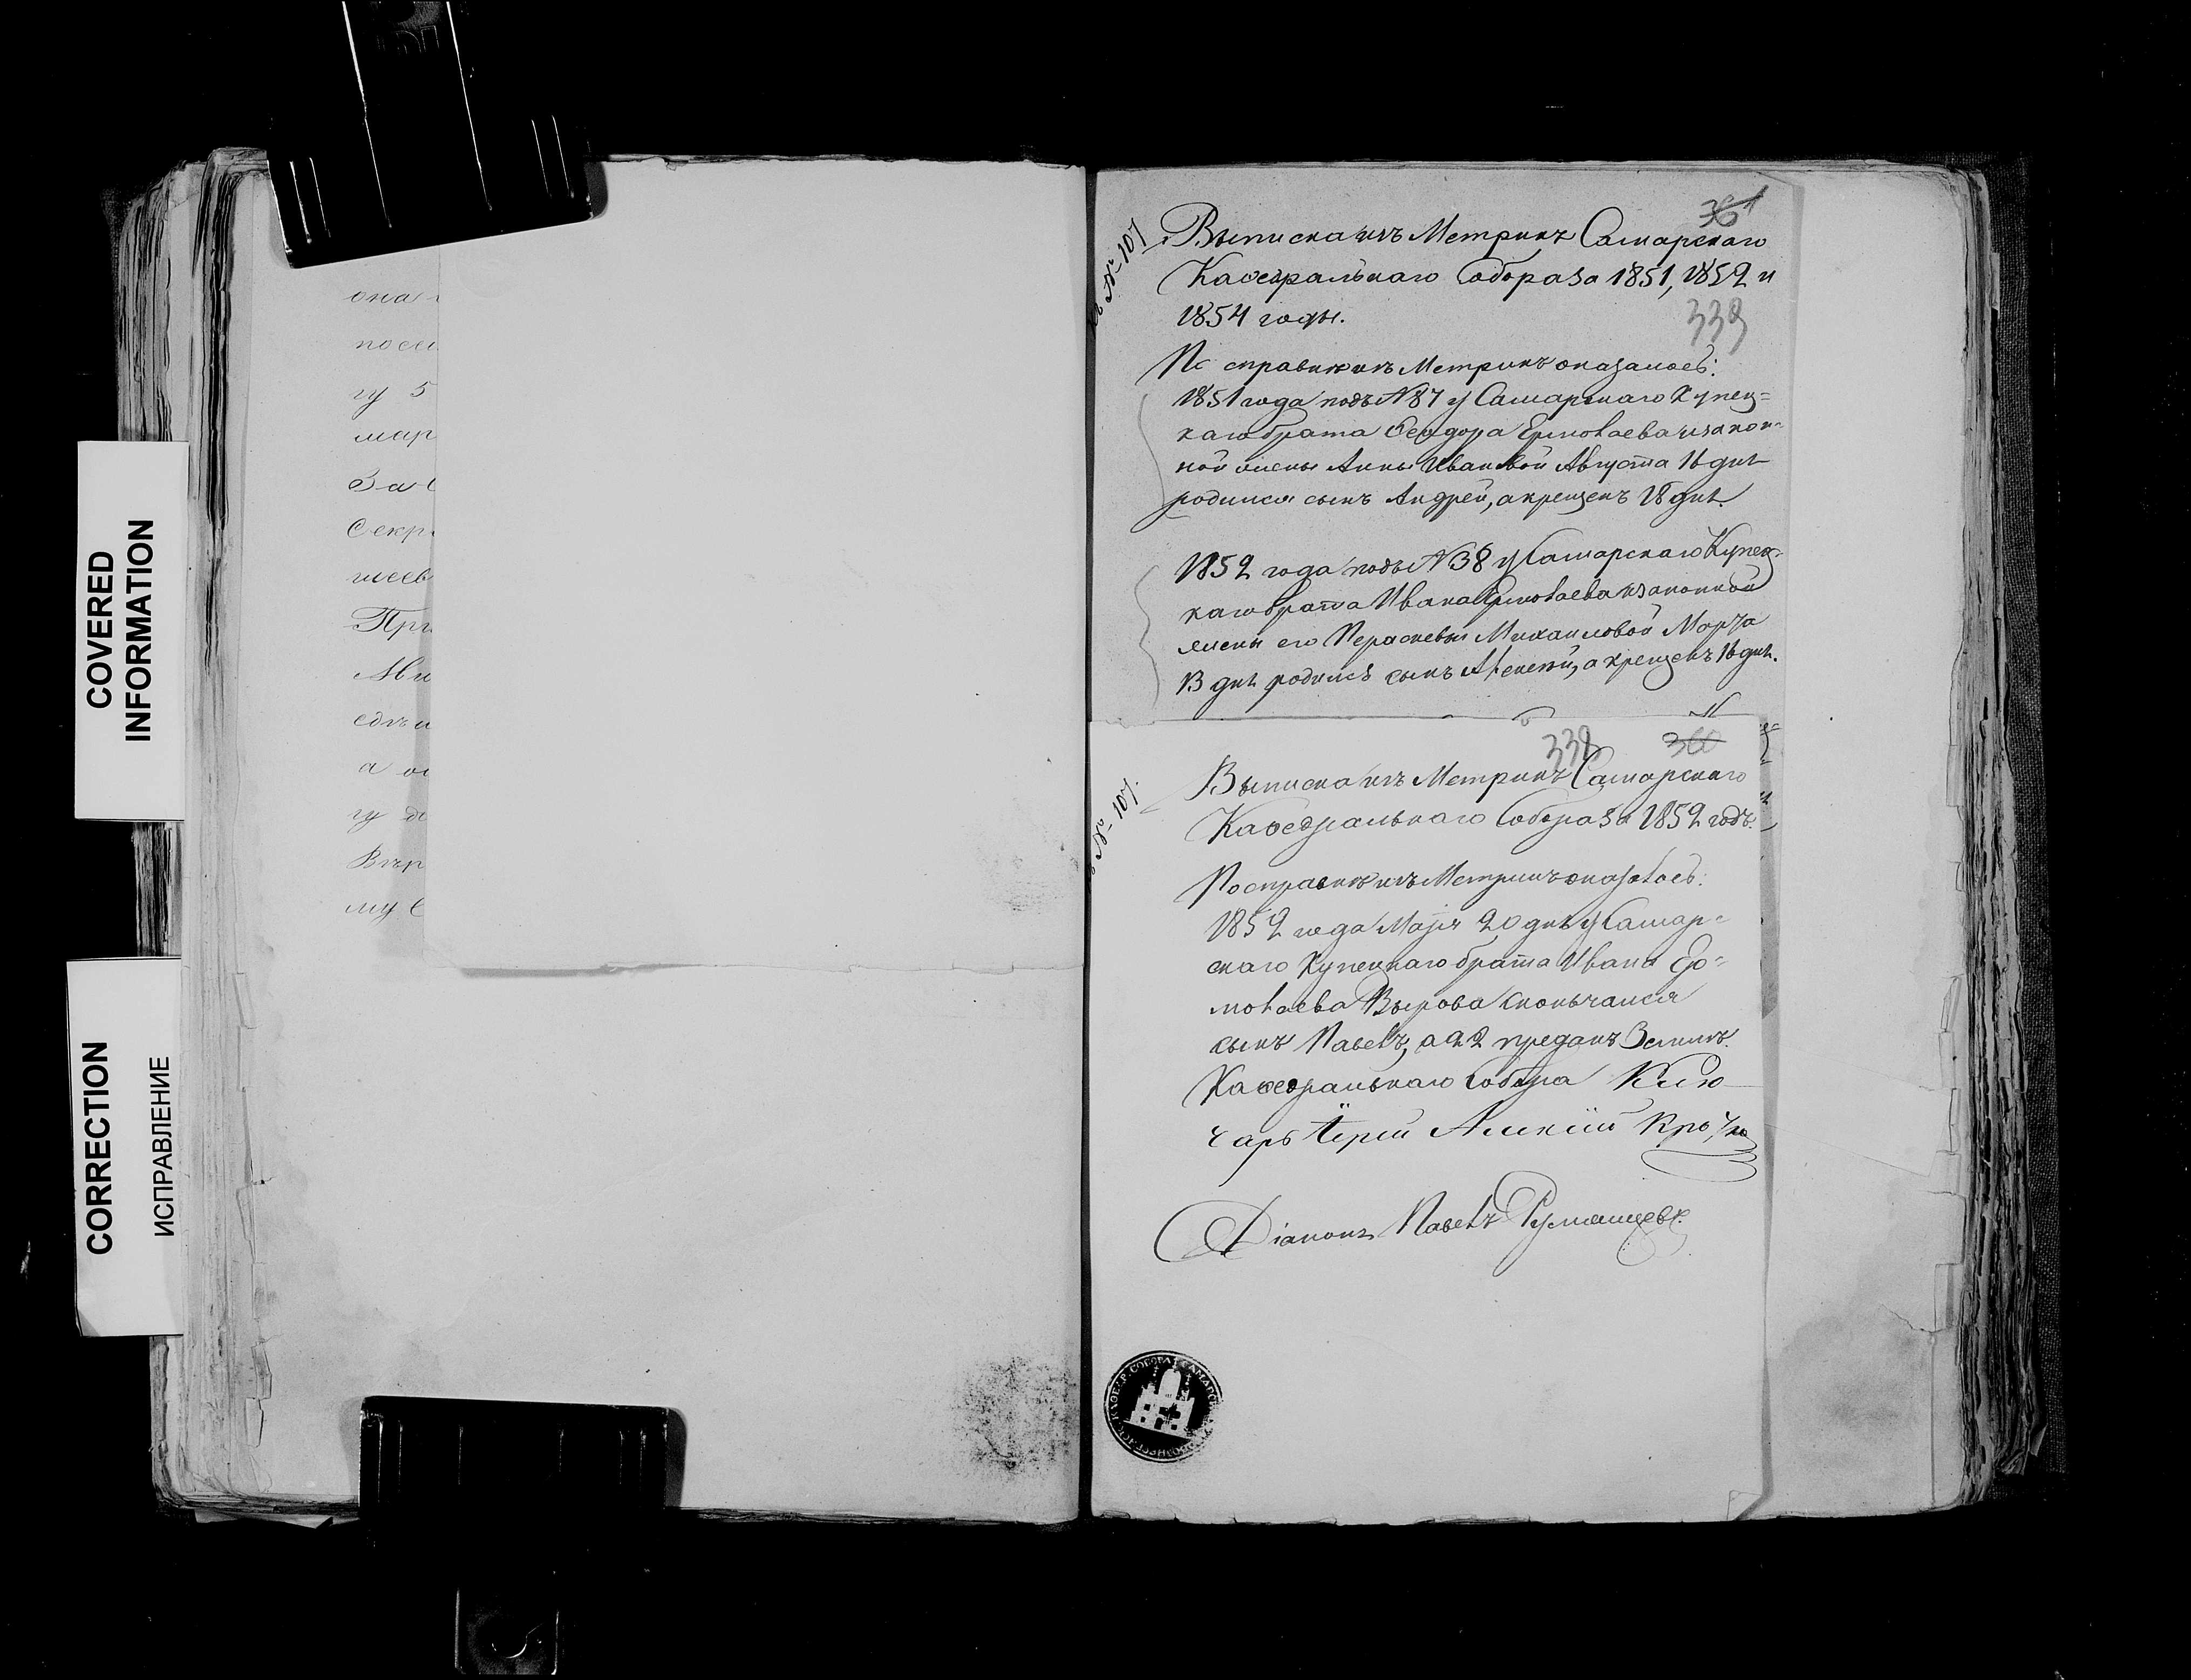 COVERED
INFORMATION
CORRECTION
ИСПРАВЛЕНИЕ
она
посе
гу 5
мар
За
Секр
шеев
При
Ми
едъи
а
гу
Вър
му
№ 107
361
Выписка изъ Метрикъ Самарскаго
Каѳедральнаго Собора за 1851, 1852 и
1854 годы.
339
По справкѣ изъ Метрикъ оказалось:
1851 года подъ № 87 у Самарскаго Купец=
каго брата Ѳеодора Ермолаева и закон-
ной жены Анны Ивановой Августа 16 дня
родился сынъ Андрей, а крещенъ 18 дня.
1852 года подъ № 38 у Самарскаго Купец=
каго брата Ивана Ермолаева и законной
жены его Параскевы Михаиловой Марта
13 дня родился сынъ Алексей, а крещенъ 16 дня.
338
360
№ 107.
Выписка изъ Метрикъ Самарскаго
Каѳедральнаго Собора за 1852 годъ.
По справкѣ изъ Метрикъ оказалось:
1852 года Маія 20 дня у Самар=
скаго Купецкаго брата Ивана Ер=
молаева скончался
сынъ Павелъ, а 22 преданъ Землѣ.
Каѳедральнаго Собора Клю
чарь Іерей Алексій
Діаконъ Павелъ Румянцевъ.